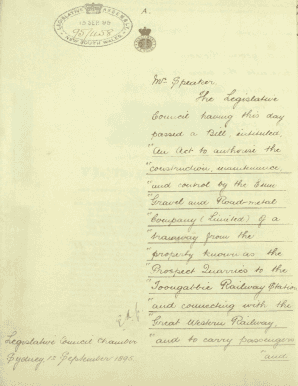 A.
LEGISLATIVE ASSEMBLY
13 SEP 95
95/1158
NEW SOUTH WALES
Mr. Speaker.
The Legislative
Council having this day
passed a Bill, intituled,
"An Act to authorise the
"construction, maintenance,
"and control by the Emu
"Gravel and Road-metal
"Company (Limited) of a
"tramway from the
"property known as the
"Prospect Quarries to the
"Toongabbie Railway Station
"and connecting with the
"Great Western Railway,
"and to carry passengers
"and
Legislative Council Chamber
Sydney 12 September 1895.